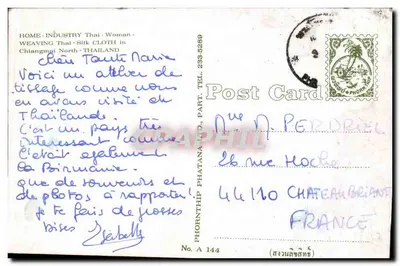 HOME - INDUSTRY Thai - Woman -
WEAVING Thai - Silk CLOTH in
Chiangmai North - THAILAND
Chère Tante Marie
Voici un atelier de
tissage comme nous
en avons visité en
Thaïlande.
C'est un pays très
intéressant comme
l'était également
la Birmanie.
que de souvenirs et
de photos à rapporter!
je te fais de grosses
bises Isabelle
No. A 144
PHORNTHIP PHATANA LTD., PART. TEL. 233 5289
Post Card
M. PERDRIEL
26 rue Hoche
44110 CHATEAUBRIANT
FRANCE
(สงวนลิขสิทธิ์)